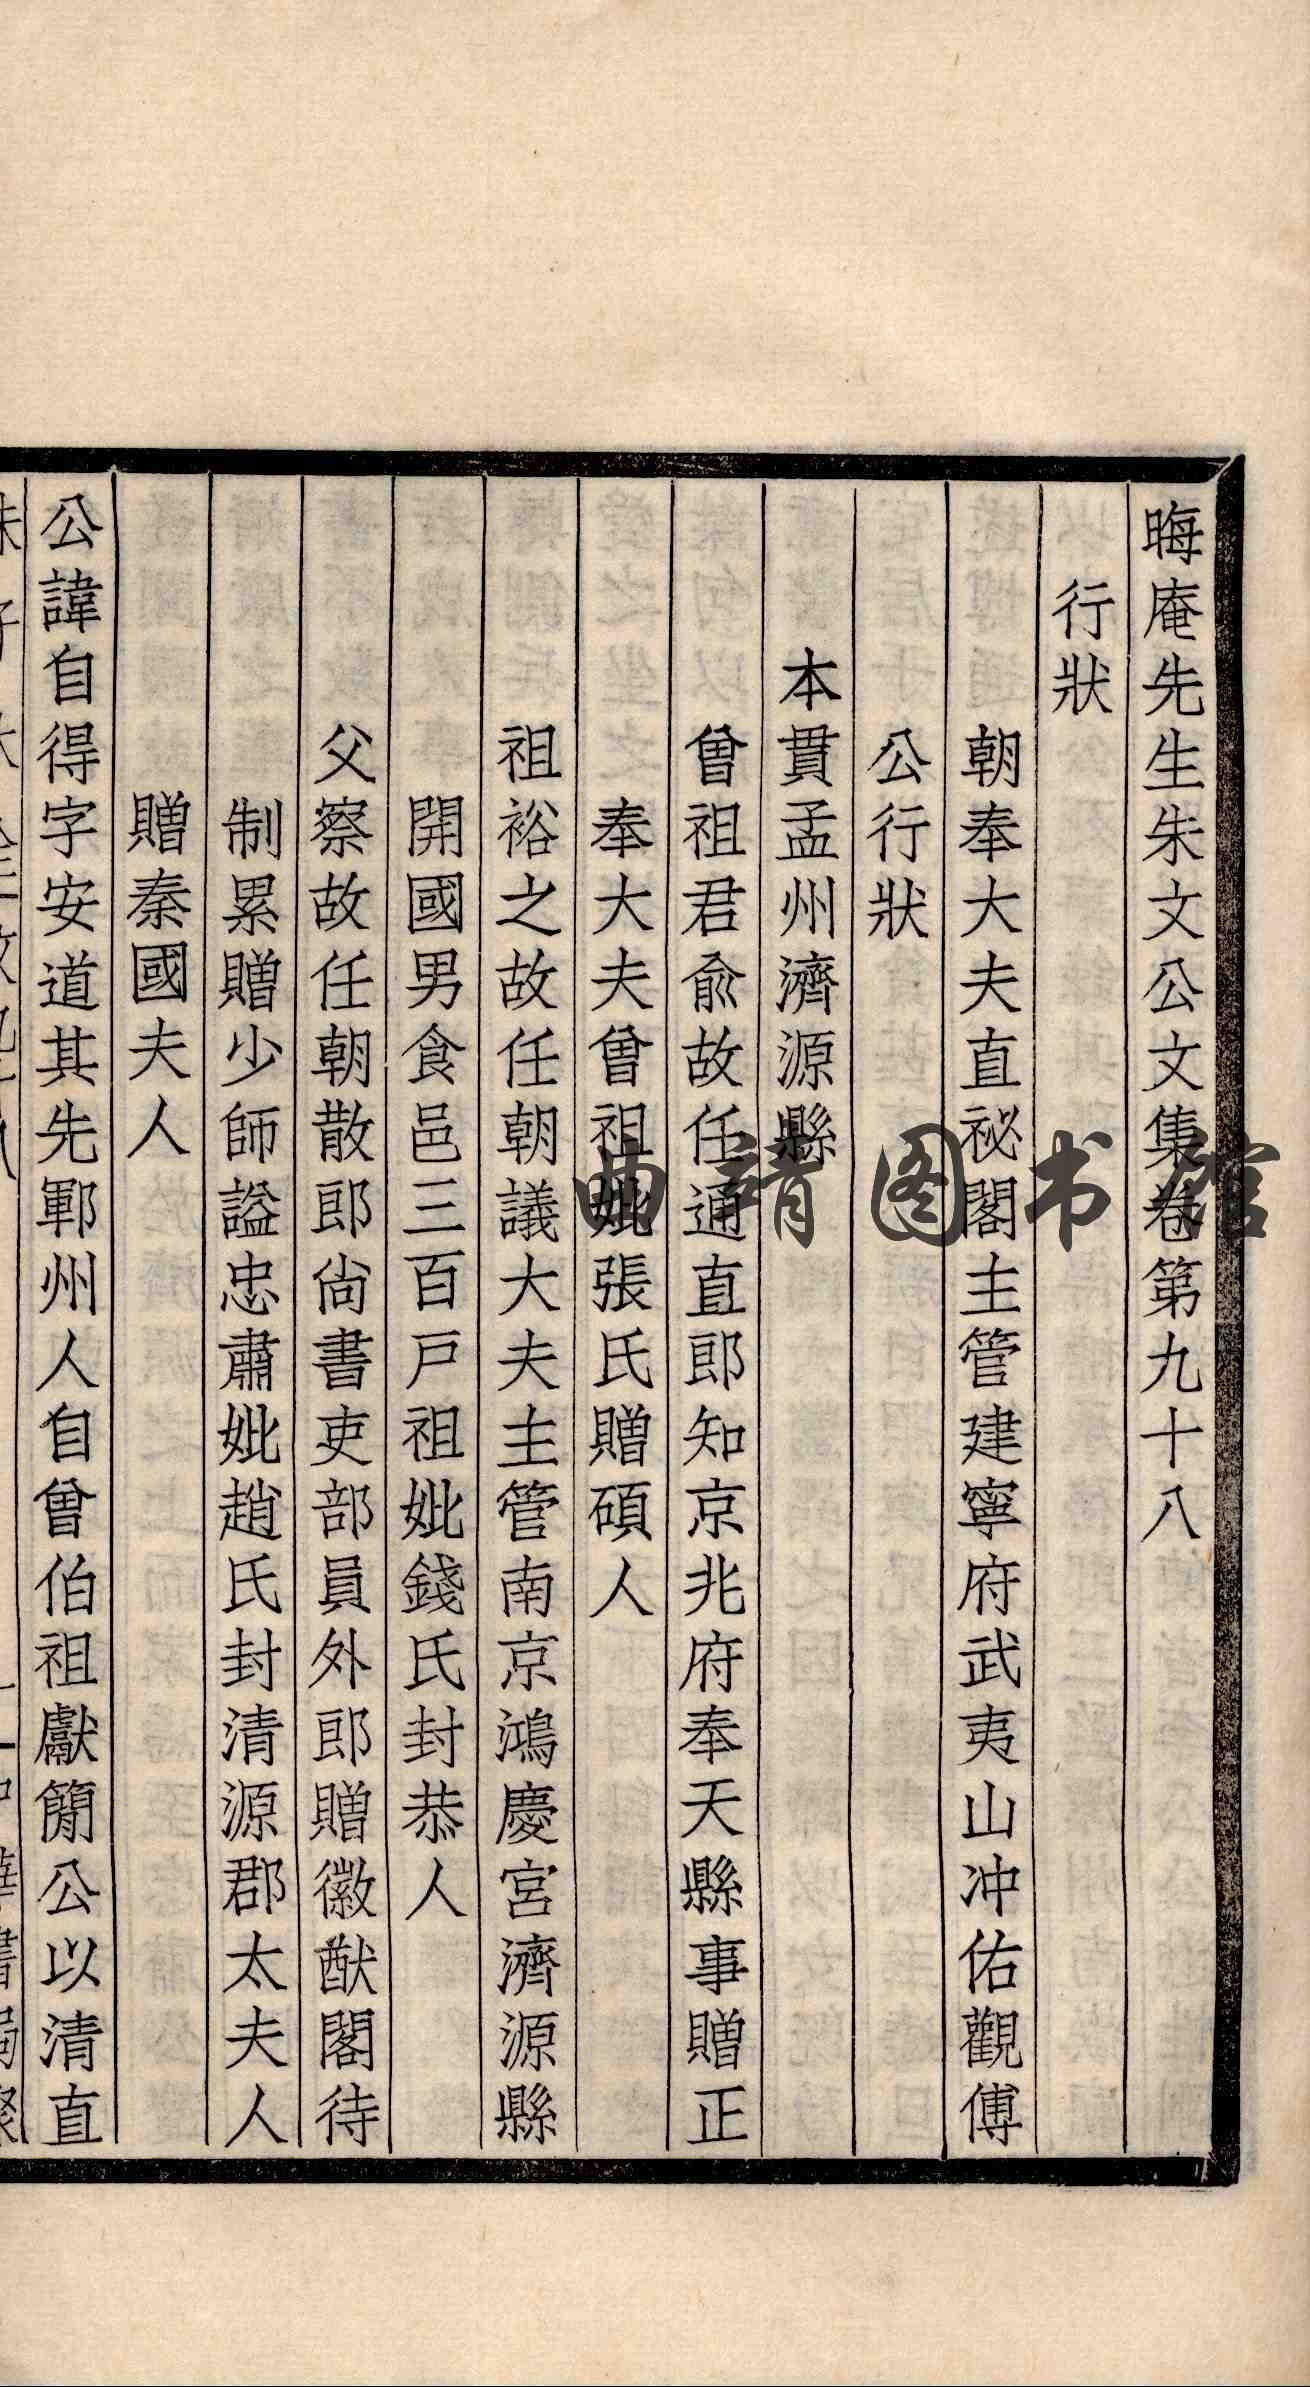 晦庵先生朱文公文集卷第九十八
行狀
朝奉大夫直祕閣主管建寧府武夷山冲佑觀傅
公行狀
本貫孟州濟源縣
曾祖君兪故任通直郎知京兆府奉天縣事贈正
奉大夫曾祖妣張氏贈碩人
祖裕之故任朝議大夫主管南京鴻慶宮濟源縣
開國男食邑三百戸祖妣錢氏封恭人
父察故任朝散郎尙書吏部員外郎贈徽猷閣待
制累贈少師謚忠肅妣趙氏封清源郡太夫人
贈秦國夫人
公諱自得字安道其先鄆州人自曾伯祖獻簡公以清直
曲靖图书馆